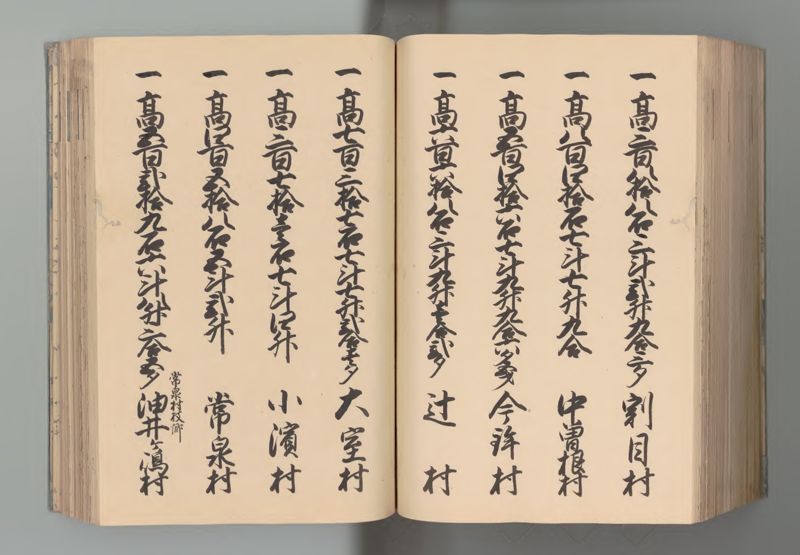 一高三百八拾八石三斗弐升九合三夕 割目村
一高八百四拾石七斗七升九合 中曽根村
一高五百四拾六石七斗九升九合六夕 今鉾村
一高六百六拾八石三斗九升壱合弐夕 辻村
一高七百三拾七石七斗七升弐合壱夕 大室村
一高三百七拾壱石七斗四升 小濱村
一高四百五拾八石五斗弐升 常泉村
常泉村枝郷
一高五百弐拾九石六斗八升三合五夕 油井ヶ嶋村